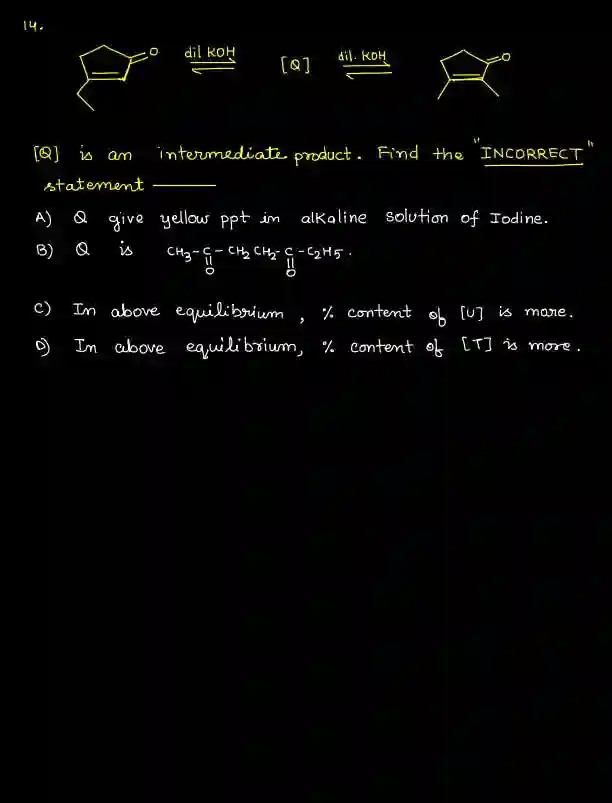 14.
O dil KOH [Q] dil. KOH O
[Q] is an intermediate product. Find the "INCORRECT"
statement ———
A) Q give yellow ppt in alkaline solution of Iodine.
B) Q is CH3-C-CH2CH2-C-C2H5.
O O
C) In above equilibrium, % content of [U] is more.
D) In above equilibrium, % content of [T] is more.